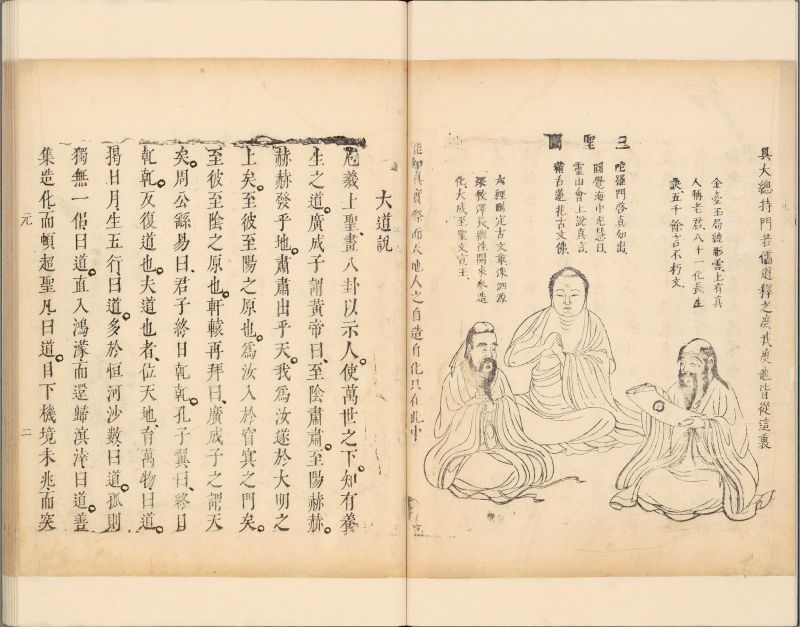 具大總持門若儒道釋之度我度他皆從這裏
三聖圖
金臺玉局繞彤雲上有真
人稱老君八十一化長生
訣五千餘言不朽文
陀羅門啓真如出
圓覺海中光慧日
靈山會上說真言
滿舌蓮花古文佛
六經刪定古文章洙泗源
深教澤長繼往開來參造
化大成至聖文宣王
能知真實際而天地人之自造自化只在此中
大道說
庖羲上聖畫八卦以示人使萬世之下知有養
生之道廣成子謂黃帝曰至陰肅肅至陽赫赫
赫赫發乎地肅肅出乎天我爲汝遂於大明之
上矣至彼至陽之原也爲汝入於窅冥之門矣
至彼至陰之原也軒轅再拜曰廣成子之謂天
矣周公繇易曰君子終日乾乾孔子翼曰終日
乾乾反復道也夫道也者位天地育萬物曰道
揭日月生五行曰道多於恒河沙數曰道孤則
獨無一侶曰道直入鴻濛而還歸溟涬曰道善
集造化而頓超聖凡曰道目下機境未兆而突
元 二